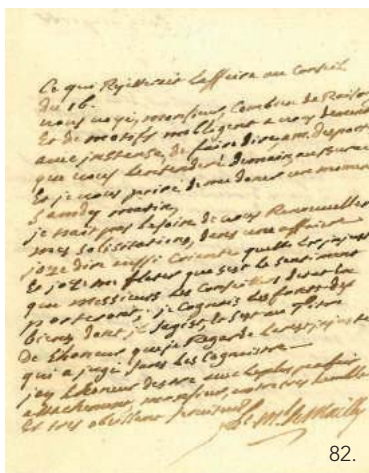 Ce qui Rejetterait Laffaire au Conseil
du 16.
vous voyé, monsieur, Combien de Raisons
Et de motifs mobligent a vous demander
avec instance, de faire dire, a m. desports
que vous Lentenderé demain, au Bureau
Et je vous prie de me doner une moment
Samdy matin,
je nait pas besoin de vous Renouveller
mes solisitations, dans une affaire
joze dire aussi Criante quelle Est injuste
Et joze me flater que sest le sentiment
que messieurs Les Conseillers d
porteront, je Cognois Les forces des
biens dont il sagist, le
de Lhoneur que je Regarde
qui a jugé sans Les Cognoistre
jay Lhoneur destre avec Le plus parfait
attachement, monsieur, votre tres humble
Et tres obeissante servante
de Mailly
82.